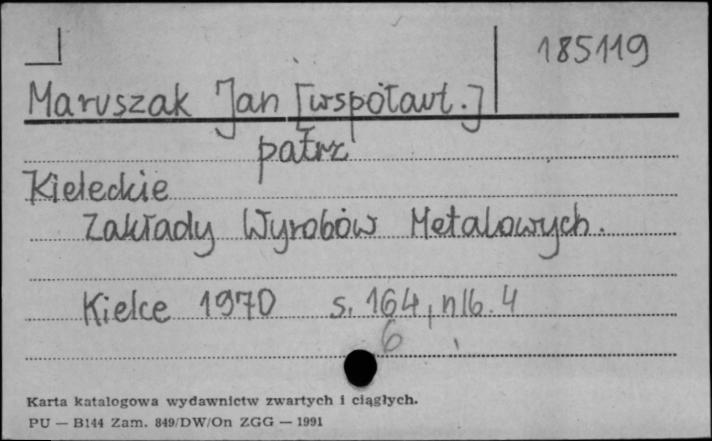 185119
Maruszak Jan [współaut.]
patrz
Kieleckie
Zakłady Wyrobów Metalowych.
Kielce 1970 s. 164, nlb. 4
6
Karta katalogowa wydawnictw zwartych i ciągłych.
PU — B144 Zam. 849/DW/On ZGG — 1991